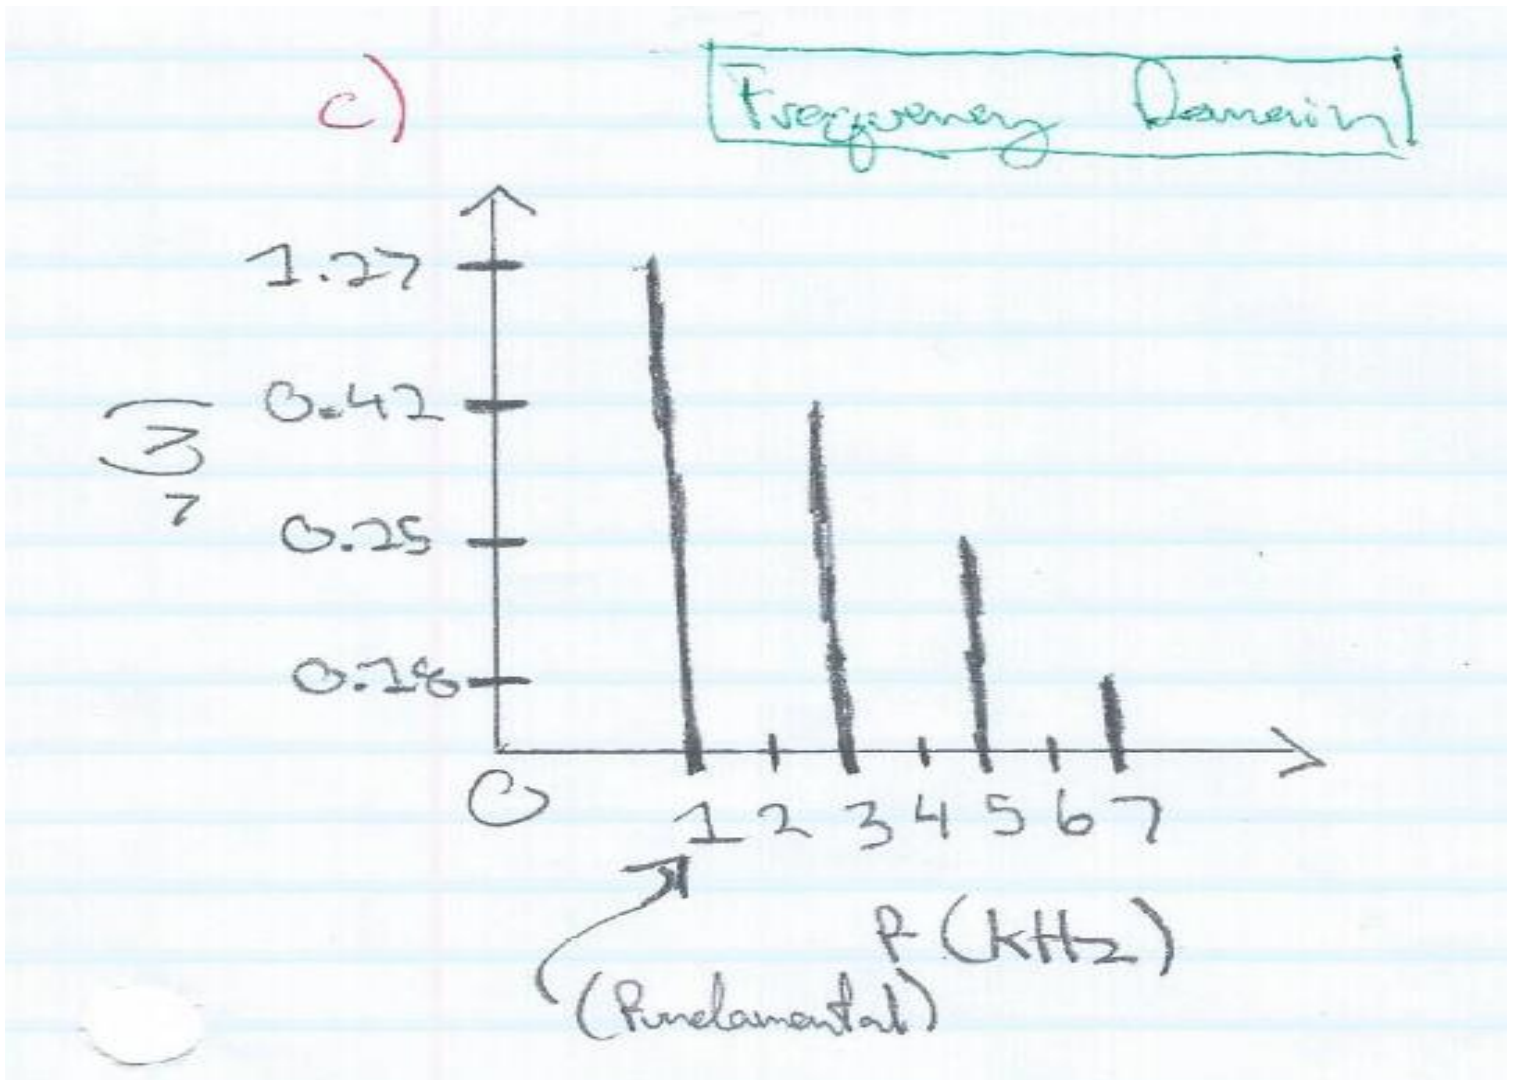 c)
Frequency Domain
1.27
0.42
0.25
0.18
0
1 2 3 4 5 6 7
f (kHz)
(fundamental)